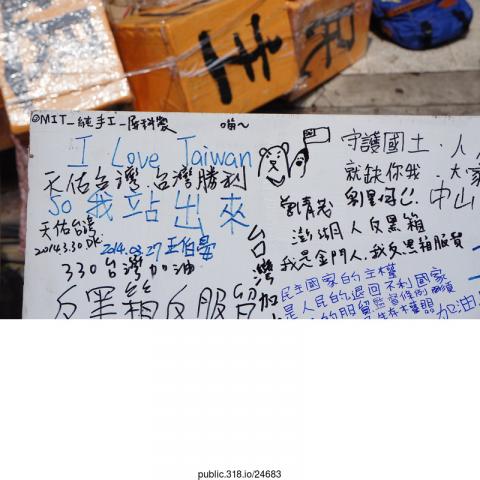 @MIT_純手工_屏科農
喵~
I Love Taiwan
天佑台灣.台灣勝利
So 我站出來
天佑台灣
2014.3.30 DK
2014.03.27 王伯晏
330台灣加油
反黑箱反服貿
台灣加
守護國土.人人
就缺你我.大家
中山
澎湖人反黑箱
我是金門人.我反黑箱服貿
民主國家的主權
是人民的退回不利國家
的服貿監督條例
加油
public.318.io/24683